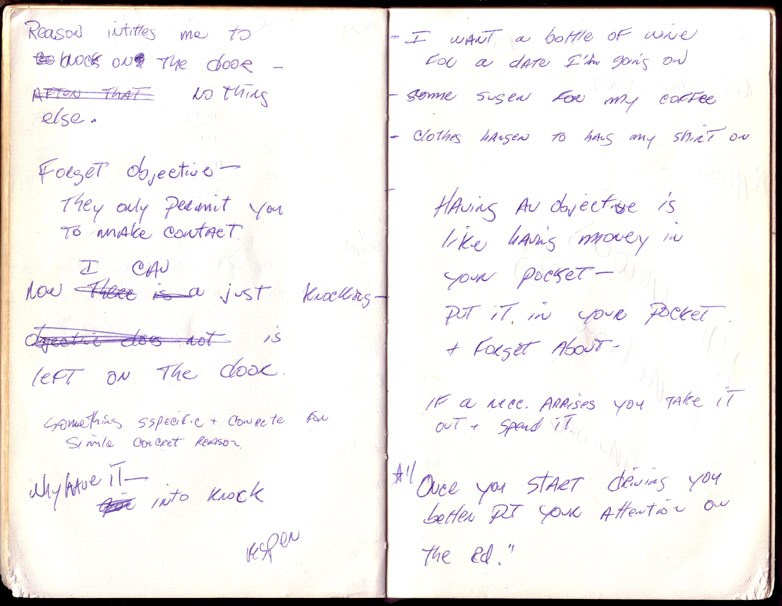 Reason intitles me to
knock on the door -
After that nothing
else.
Forget objective -
They only permit you
to make contact
I can
Now there is a just knocking -
objective does not is
left on the door.
Something sspecific + concrete for
Simple concret reason
Why have it -
into knock
- I want a bottle of wine
for a date I'm going on
- some suger for my coffee
- clothes hanger to hang my shirt on
-
Having an objective is
like having money in
your pocket -
put it in your pocket
+ forget about -
If a nece. arrises you take it
out + spend it
Once you start driving you
better put your attention on
the rd."